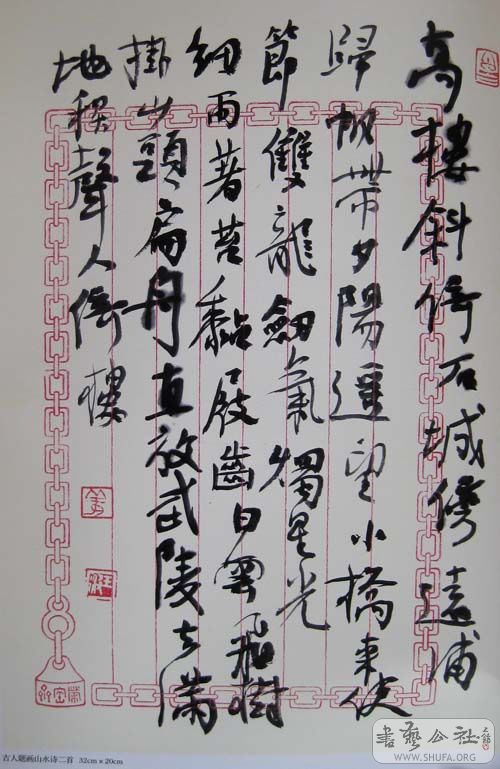 高樓斜倚石城傍遠浦
歸帆帶夕陽遥望小橋來使
節雙龍劍氣燭星光
細雨著苔黏屐齒白雲飛樹
掛山頭扁舟直放武陵去滿
地猿聲人倚樓
古人题画山水诗二首 32cm×20cm
書藝公社
WWW.SHUFA.ORG